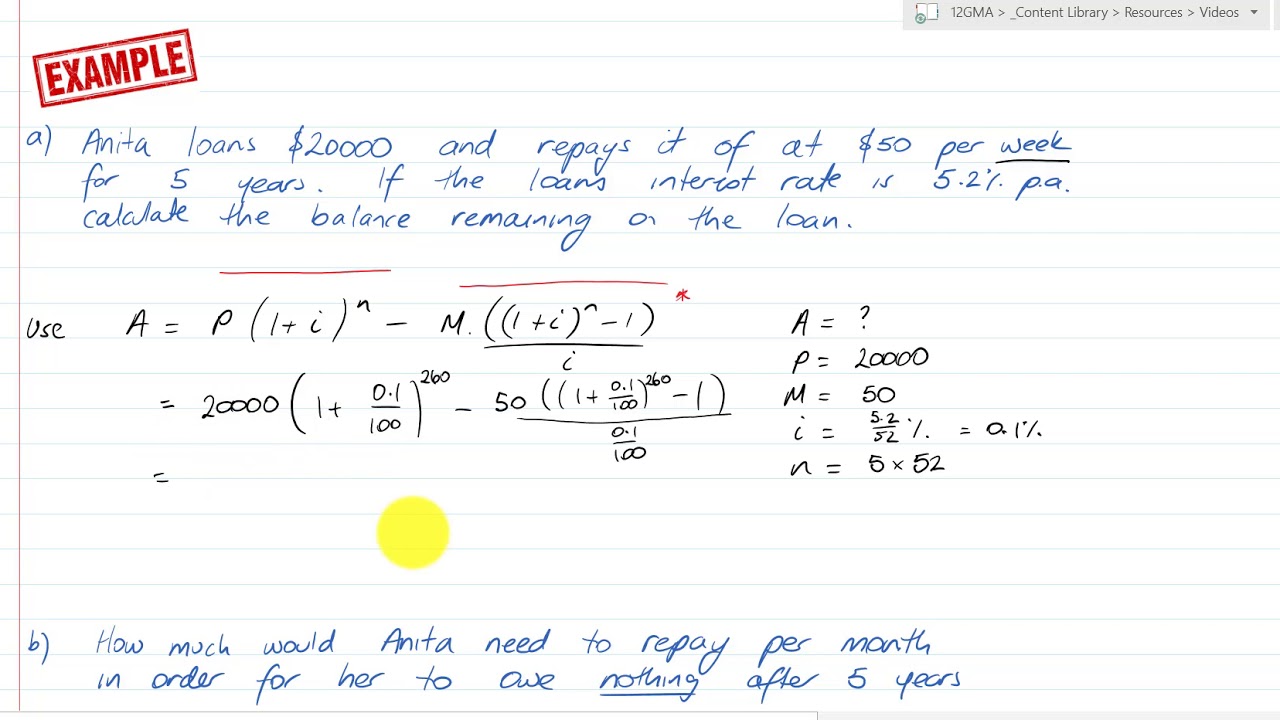 12GMA > _Content Library > Resources > Videos
EXAMPLE
a) Anita loans $20000 and repays it of at $50 per week
for 5 years. If the loans interest rate is 5.2% p.a.
calculate the balance remaining on the loan.
Use A = P(1+i)^n - M.((1+i)^n-1)/i *
= 20000(1+ 0.1/100)^260 - 50((1+0.1/100)^260-1)/(0.1/100)
=
A = ?
P = 20000
M = 50
i = 5.2/52 % = 0.1%
n = 5×52
b) How much would Anita need to repay per month
in order for her to owe nothing after 5 years